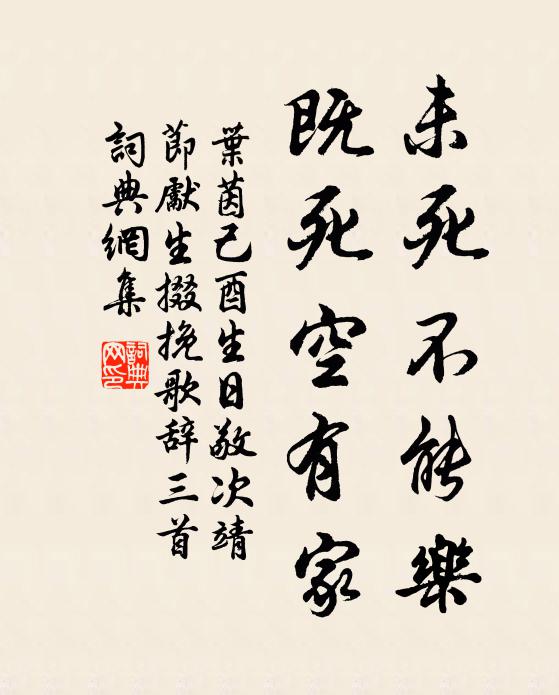 未死不能樂
既死空有家
葉茵己酉生日敬次靖
節獻生掇挽歌辞三首
詞典網集
詞典網印